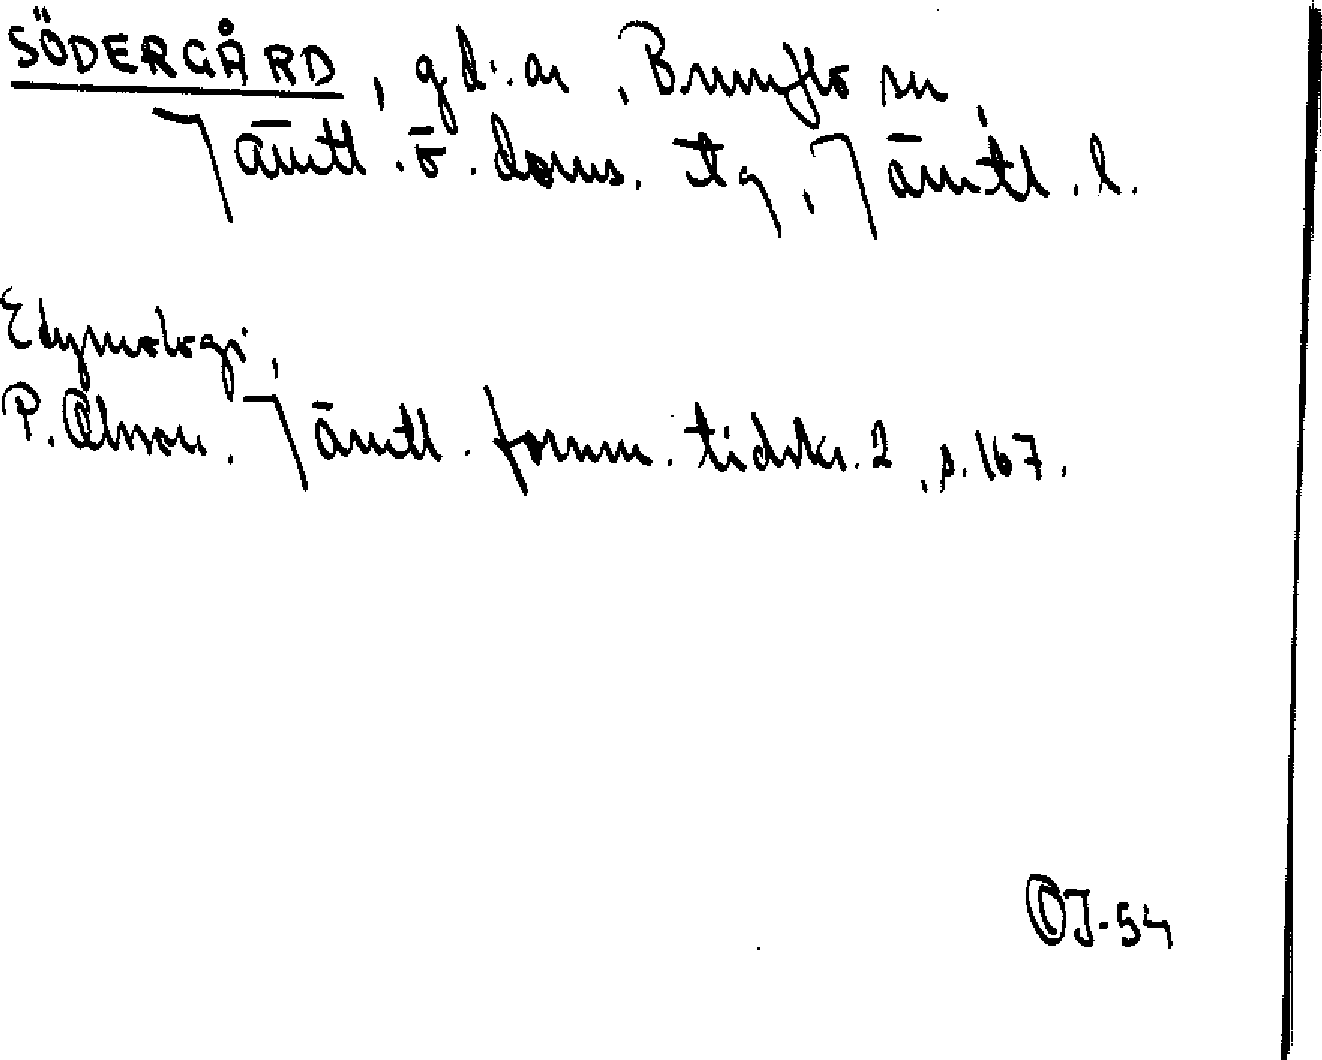 SÖDERGÅRD, gd:ar, Brunflo sn,
Jämtl. ö. doms. tg, Jämtl. l.
Etymologi,
P. Olsson. Jämtl. fornm. tidskr. 2, s. 167.
OJ-54